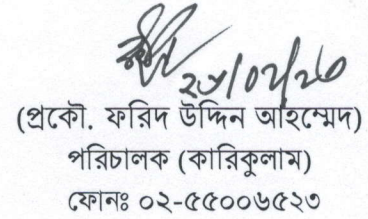 (প্রকৌ. ফরিদ উদ্দিন আহম্মেদ)
পরিচালক (কারিকুলাম)
ফোনঃ ০২-৫৫০০৬৫২৩